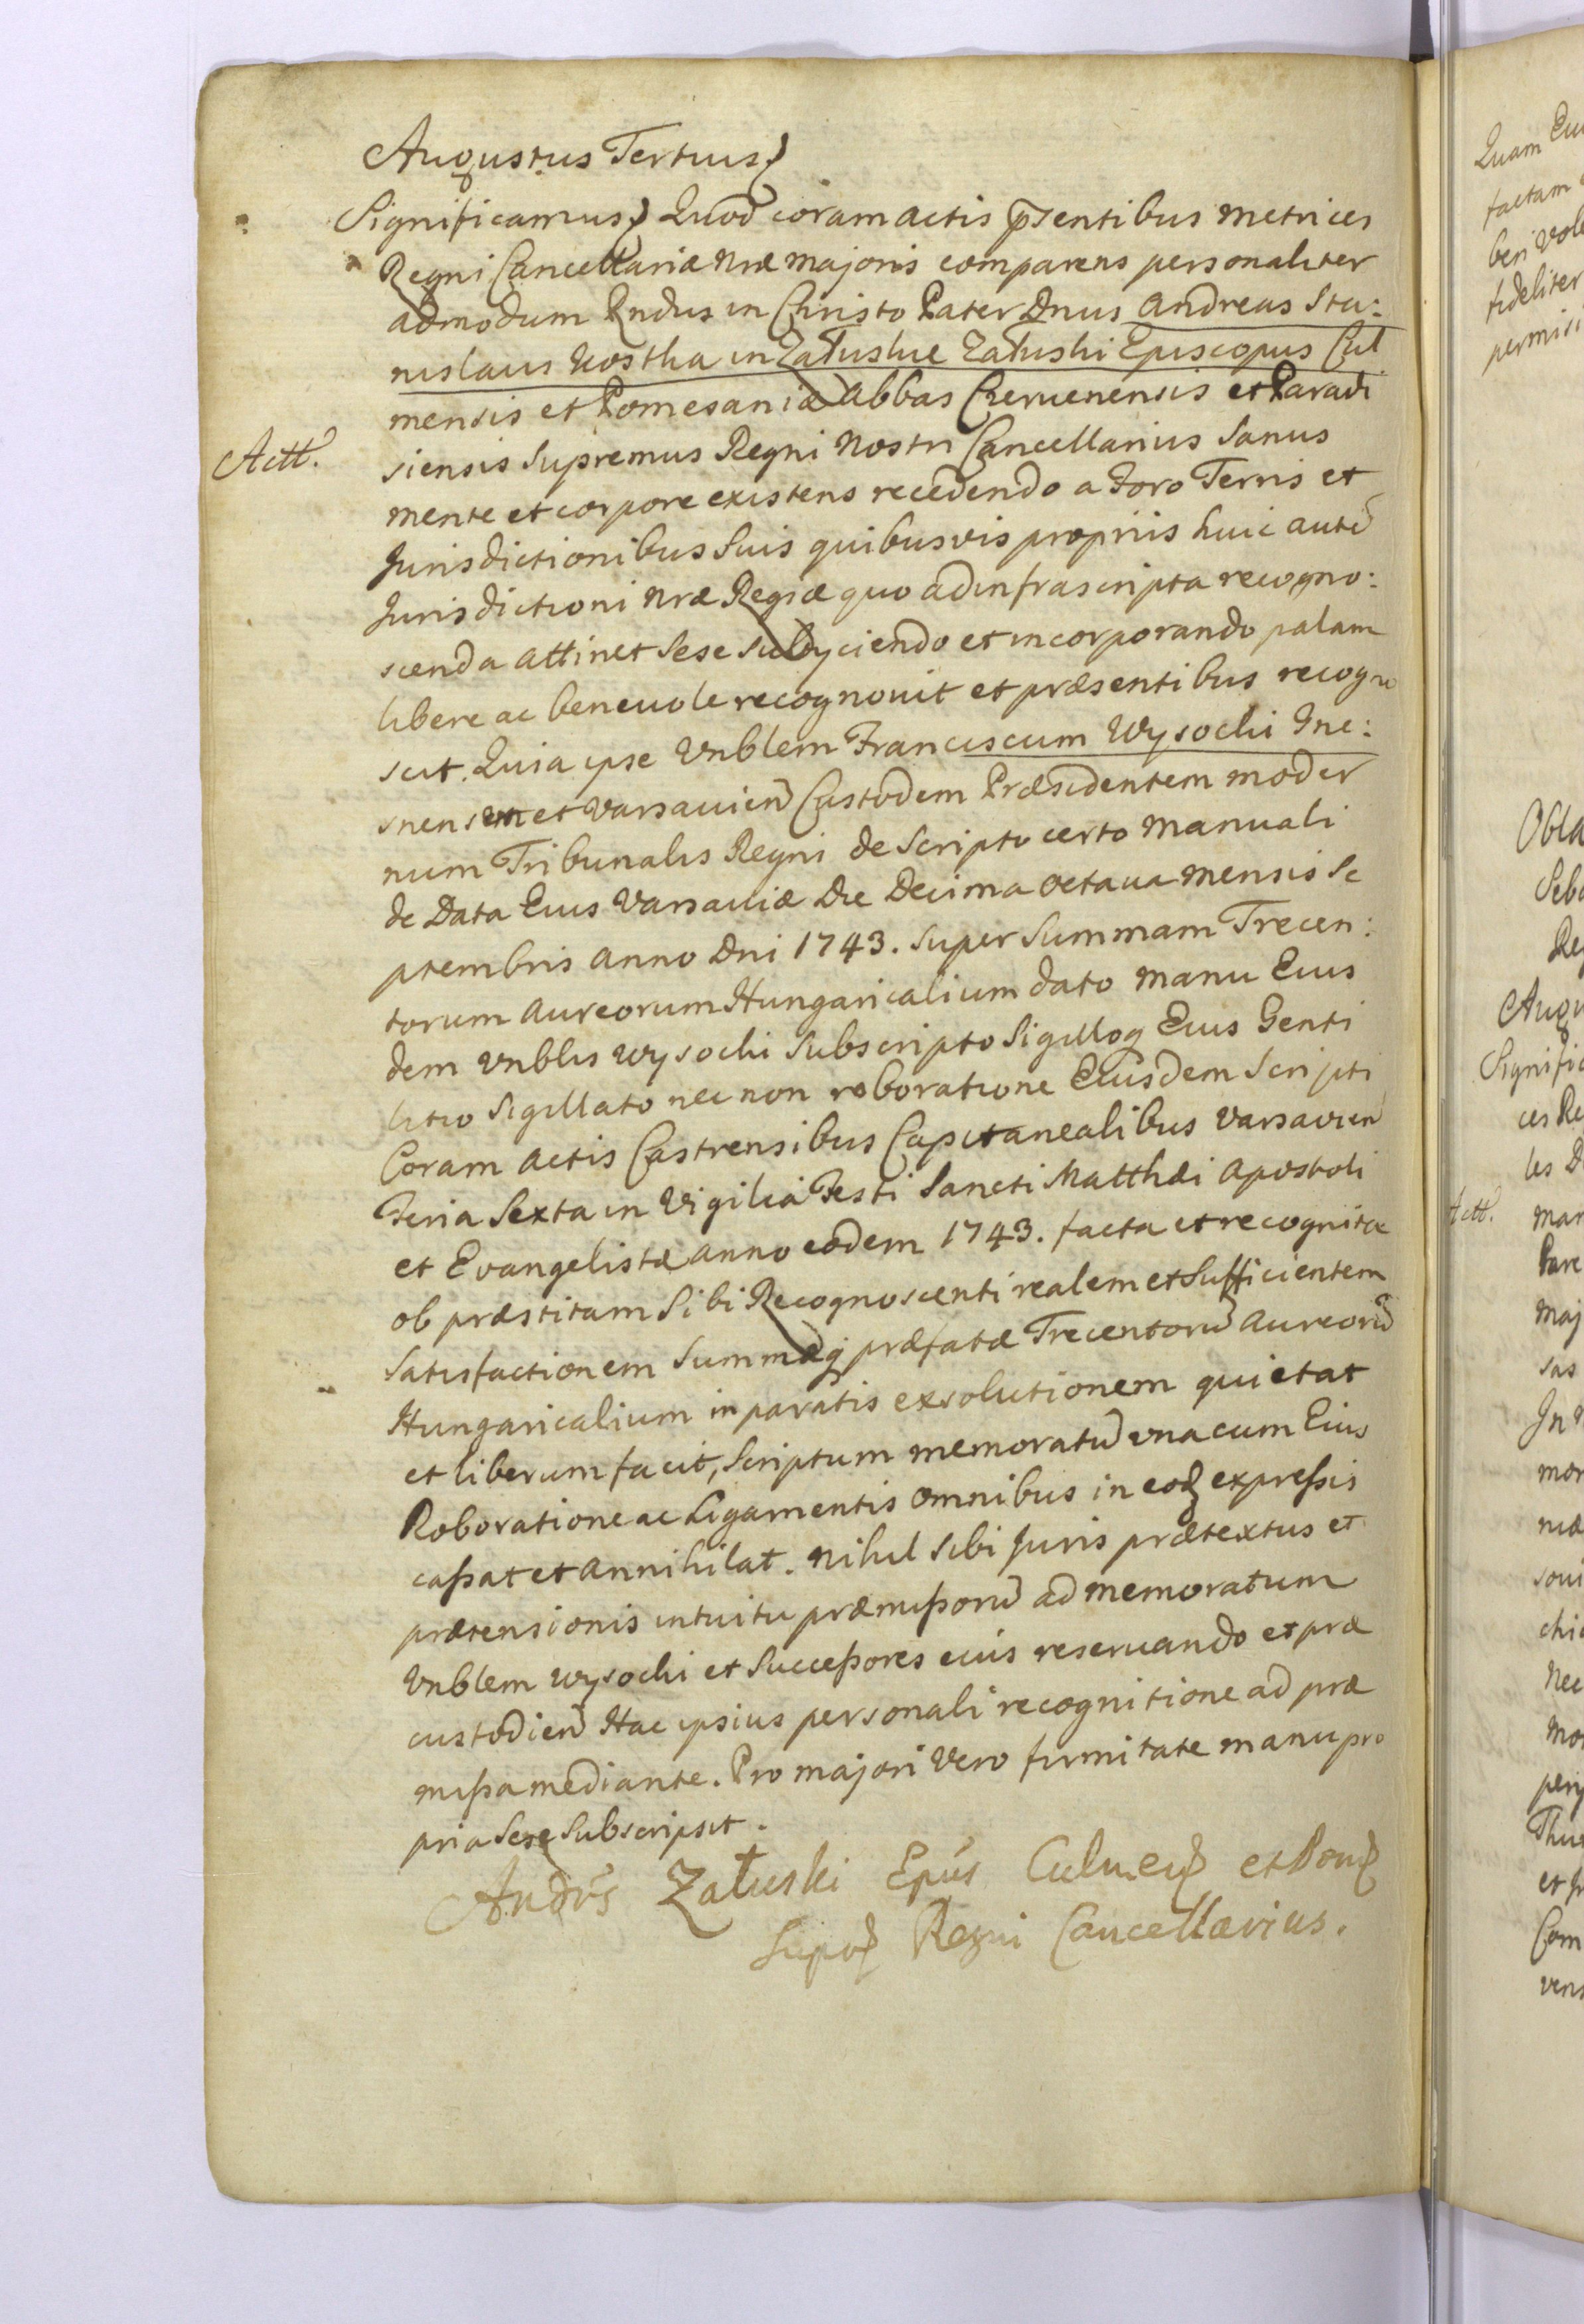 Augustus Tertius
Significamus Quod coram actis pntibus metrices
Regni Cancellariæ Nræ majoris comparens personaliter
admodum Rndus in Christo Pater Dnus Andreas Sta:
nislaus Kostka in Załuskie Załuski Episcopus Cul
mensis et Pomesaniæ Abbas Czervenensis et Paradi
Actt.
siensis Supremus Regni Nostri Cancellarius Sanus
mente et corpore existens recedendo a Foro Terris et
Jurisdictionibus Suis quibusvis propriis huic autē
Jurisdictioni Nræ Regiæ quo ad infrascripta recogno:
scenda attinet Sese subyciendo et incorporando palam
libere ac beneuole recognouit et præsentibus recogno
scit. Quia ipse Vnblem Franciscum Wysocki Gne:
snensem et Varsavien Custodem Præsidentem moder
num Tribunalis Regni de Scripto certo Manuali
de Data Eius Varsaviæ Die Decima octaua Mensis Se
ptembris Anno Dni 1743. Super Summam Trecen:
torum Aureorum Hungaricalium dato Manu Eius
dem Vnblis Wysocki Subscripto Sigilloq Eius Genti
litio Sigillato nec non roboratione Eiusdem Scripti
Coram Actis Castrensibus Capitanealibus Varsavien
Feria Sexta in Vigilia Festi Sancti Matthæi Apostoli
et Evangelistæ Anno eodem 1743. facta et recognita
ob præstitam Sibi Recognoscenti realem et Sufficientem
Satisfactionem Summæq præfatæ Trecentorū Aureorū
Hungaricalium in paratis exsolutionem quietat
et liberum facit, Scriptum memoratū vna cum Eius
Roboratione ac Ligamentis omnibus in eod expreßis
caßat et annihilat. Nihil Sibi Juris prætextus et
prætensionis intuitu præmißorū ad memoratum
Vnblem Wysocki et Succeßores eius reseruando et præ
custodien Hac ipsius personali recognitione ad præ
mißa mediante. Pro majori Vero firmitate manu pro
pria Sese Subscripsit.
Andrs Załuski Epús Culmen et Pom
Supr Regni Cancellarius.
Quam
factam
beri
fideliter
Obla
Augu
Signific
Actt.